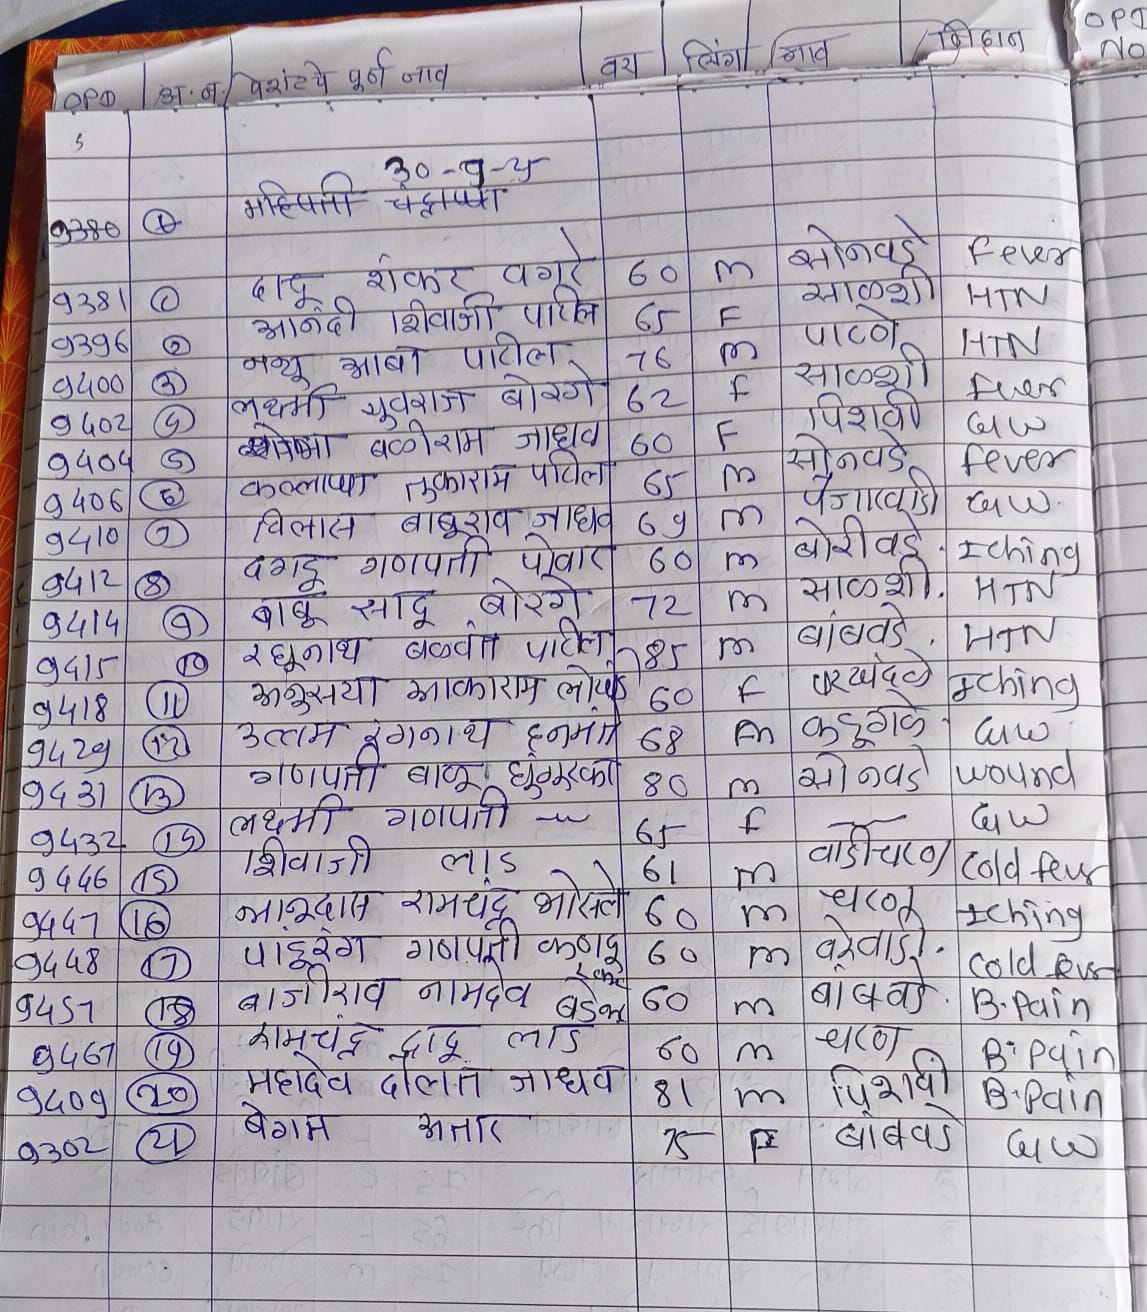 OPD अ.न. पेशंटचे पूर्ण नाव वय लिंग गाव निदान OPD NO
30-9-25
9380 महिपती
9381 1 दादू शंकर वगरे 60 m सोनवडे fever
9396 2 आनंदी शिवाजी पाटील 65 F साळशी HTN
9400 3 नथू आबा पाटील 76 m पाटणे HTN
9402 4 लक्ष्मी युवराज बोरगे 62 f साळशी fever
9404 5 बळीराम जाधव 60 F पिशवी GW
9406 6 कल्लाप्पा तुकाराम पाटील 65 m सोनवडे fever
9410 7 विलास बाबुराव जाधव 69 m GW
9412 8 दगडू गणपती पोवार 60 m बोरीवडे. Iching
9414 9 बाबू सादू बोरगे 72 m साळशी. HTN
9415 10 रघुनाथ बळवंत पाटील 85 m बांबवडे. HTN
9418 11 अनुसया आकाराम 60 f Iching
9429 12 उत्तम रंगनाथ 68 m GW
9431 13 गणपती बाळू 80 m सोनवडे wound
9432 14 लक्ष्मी गणपती -"- 65 f — GW
9446 15 शिवाजी लाड 61 m वाडीचरण cold fever
9447 16 रामचंद्र भोसले 60 m थरणे Iching
9448 17 पांडुरंग गणपती 60 m cold fever
9457 18 बाजीराव नामदेव 60 m बांबवडे. B.Pain
9467 19 रामचंद्र दादू लाड 60 m B.Pain
9409 20 महादेव दौलत जाधव 81 m पिशवी B.Pain
9302 21 बेगम अत्तार 75 F बांबवडे GW